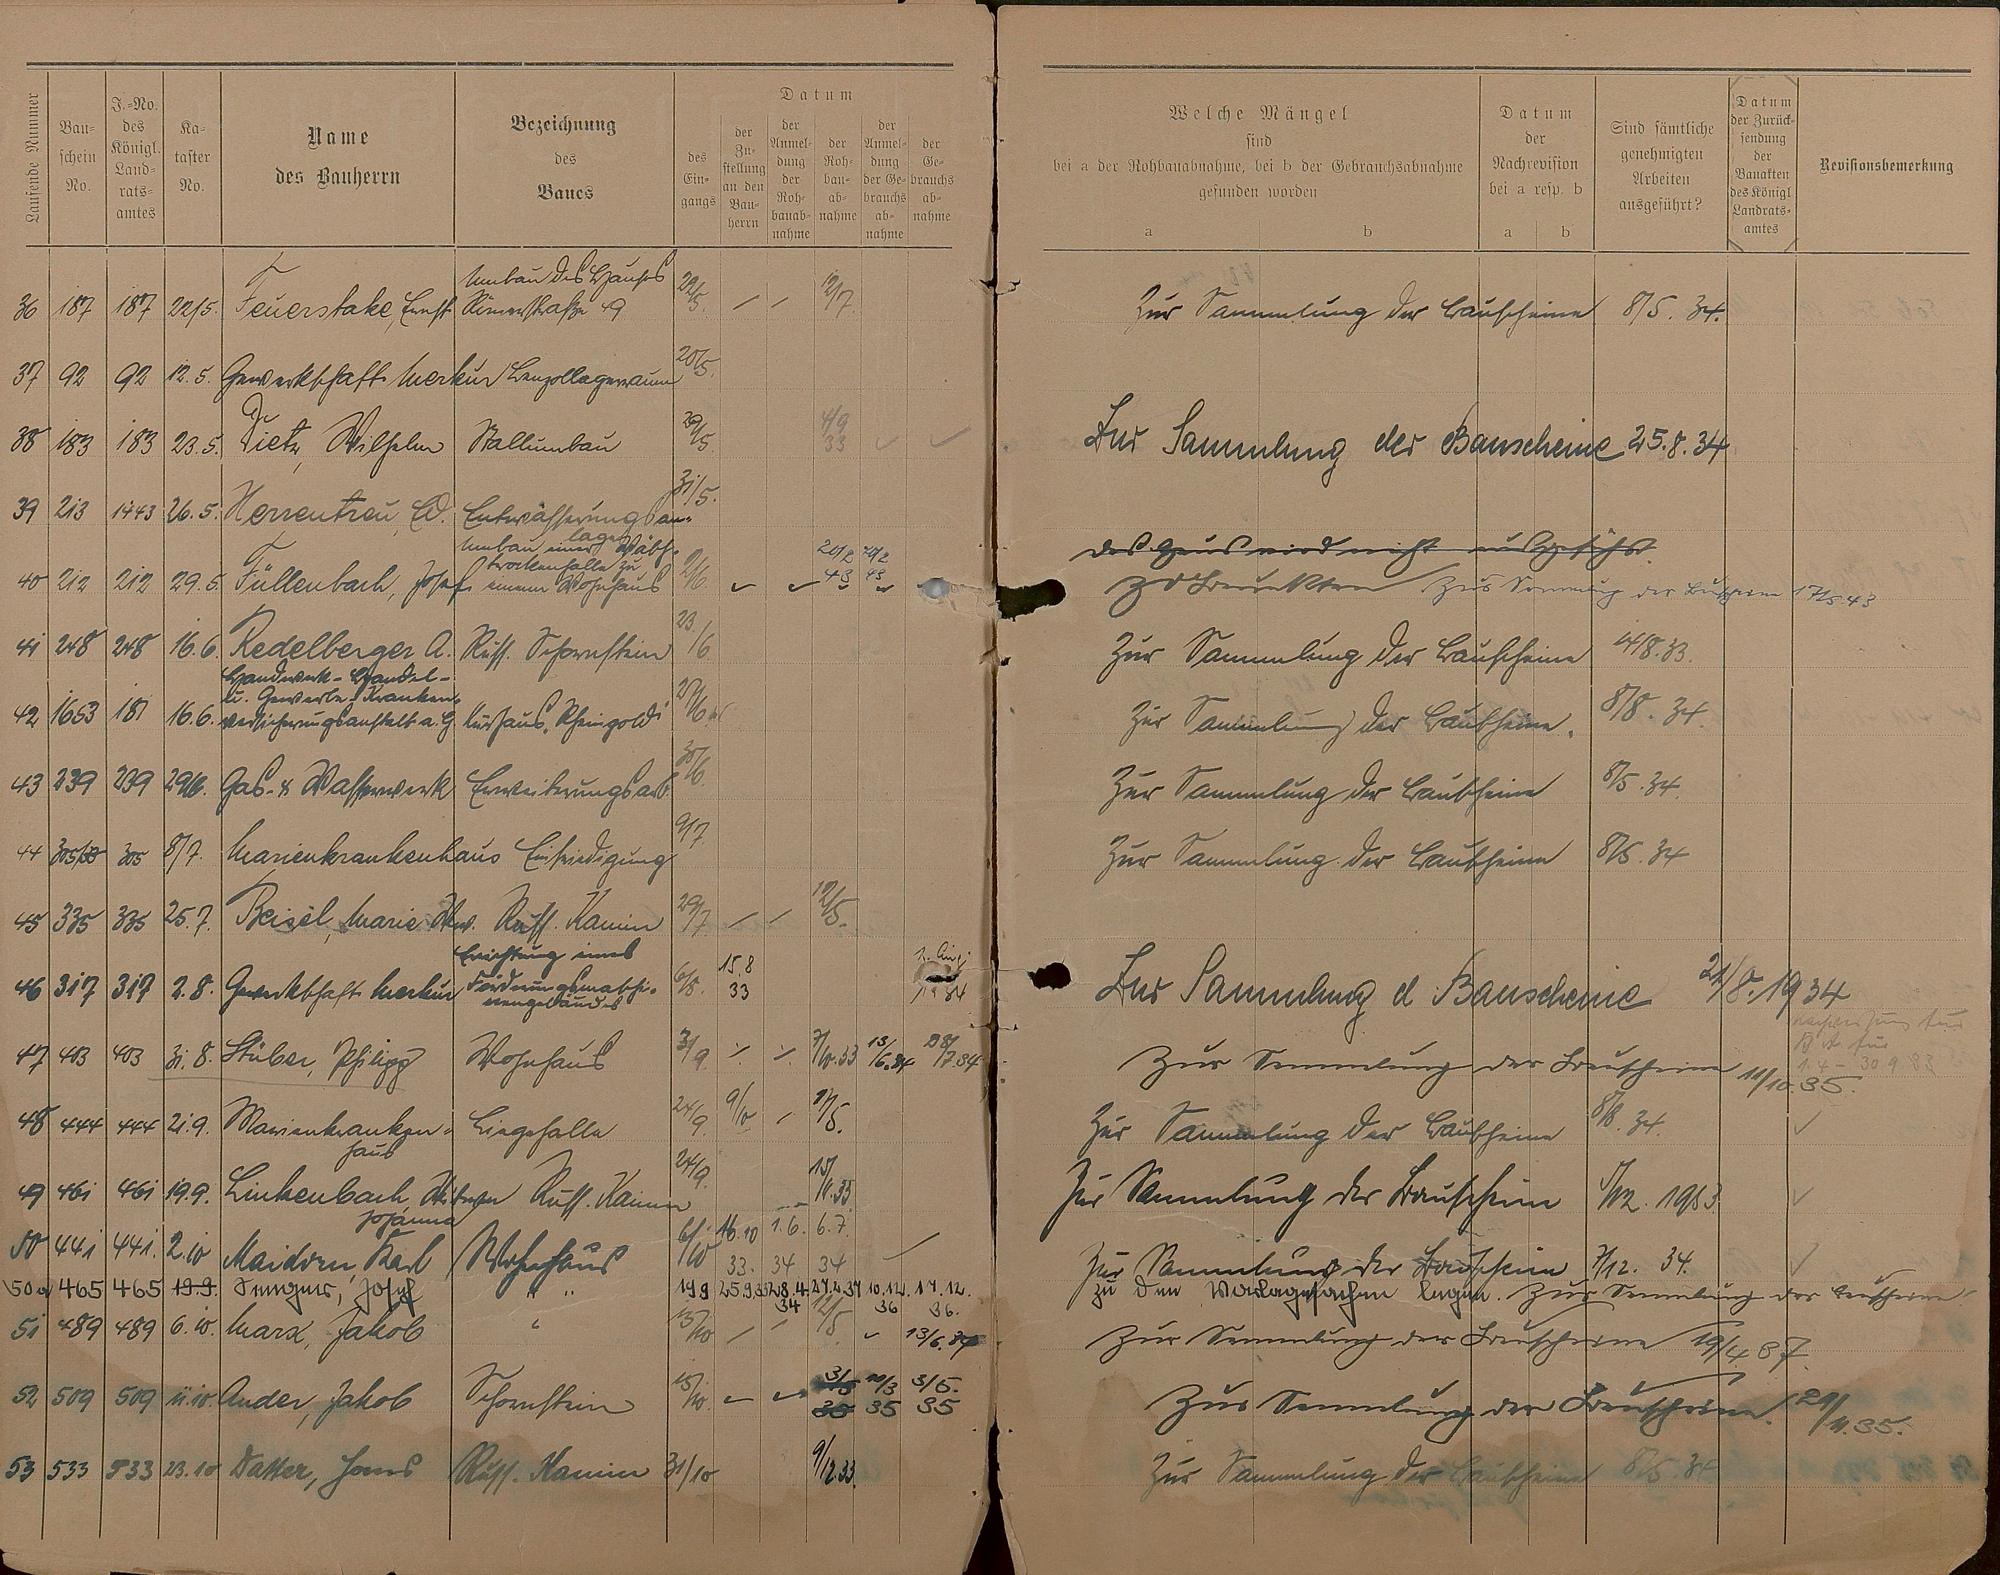 Laufende Nummer
Bau-
schein
No.
J.-No.
des
Königl.
Land-
rats-
amtes
Ka-
taster
No.
Name
des Bauherrn
Bezeichnung
des
Baues
Datum
des
Ein-
gangs
der
Zu-
stellung
an den
Bau-
herrn
der
Anmel-
dung
der
Roh-
bauab-
nahme
der
Roh-
bau-
ab-
nahme
der
Anmel-
dung
der Ge-
brauchs
ab-
nahme
der
Ge-
brauchs
ab-
nahme
Welche Mängel
sind
bei a der Rohbauabnahme, bei b der Gebrauchsabnahme
gefunden worden
a b
Datum
der
Nachrevision
bei a resp. b
a b
Sind sämtliche
genehmigten
Arbeiten
ausgeführt?
Datum
der Zurück-
sendung
der
Bauakten
des Königl
Landrats-
amtes
Revisionsbemerkung
Umbau des Hauses
36 187 187 22/5. Feuerstake, Ernst Römerstraße 49 29/5. 12/7. Zur Sammlung der Bauscheine 8/5. 34.
37 92 92 12.5. Gewerkschaft Merkur Benzollagerraum 20/5.
38 183 183 23.5. Dietz, Wilhelm Stallumbau 29/5. 4/9 33 Zur Sammlung der Bauscheine 25.8.34
39 213 1443 26.5. Herrentreu, Ed. Entwässerungsan-
lage 31/5.
Das Haus wird nicht ausgeführt
Umbau einer Wäsche-
trockenhalle zu
40 212 212 29.5. Füllenbach, Josef einem Wohnhaus 2/6. 20/2 43 20/2 43 Zur Sammlung der Bauscheine 17/5 43
41 248 248 16.6. Redelberger A. Russ. Schornstein 23/6 Zur Sammlung der Bauscheine 14/8.33.
Handwerk- Handel-
u. Gewerbe-Kranken-
42 1653 181 16.6. versicherungsanstalt a. G. Kurhaus "Rheingold" 27/6 Zur Sammlung der Bauscheine. 8/8. 34.
43 239 239 29/6. Gas- & Wasserwerk Erweiterungsarb. 30/6. Zur Sammlung der Bauscheine 8/5. 34.
44 305/33 305 8/7. Marienkrankenhaus Einfriedigung 9/7. Zur Sammlung der Bauscheine 8/5. 34
45 335 335 25.7. Beisel, Marie Ww. Russ. Kamin 29/7. 12/5.
Errichtung eines
46 317 317 2.8. Gewerkschaft Merkur Förderungsmaschi-
nengebäudes 6/8. 15.8 33 Zur Sammlung d Bauscheine 21/8. 1934
47 403 403 31.8. Stüber, Philipp Wohnhaus 3/9. 7/10.33 13/6.34 28/7.34 Zur Sammlung der Bauscheine 11/10.35.
1.4 - 30 9 33
48 444 444 21.9. Marienkranken-
haus Liegehalle 24/9. 9/10 17/5. Zur Sammlung der Bauscheine 8/8. 34.
49 461 461 19.9. Linkenbach, Witwe
Johanna Russ. Kamin 24/9. 15/11.33 Zur Sammlung der Bauschein
50 441 441. 2.10 Maidorn Karl Wohnhaus 6/10 16.10 33. 1.6. 34 6.7. 34 Zur Sammlung der Bauschein 7/12. 34.
50a 465 465 19.9. Josef " " 19 9 25.9.33 28.4. 34 27.4.34 10.12. 36 17.12. 36. zu den Vorlagesachen legen. Zur Sammlung der Bauscheine
51 489 489 6.10. Marx, Jakob " 13/10 12/5 13/6.34 Zur Sammlung der Bauscheine 19/4 37.
52 509 509 11.10. Ander, Jakob Schornstein 13/10. 3/5 35 20/3 35 3/5. 35 Zur Sammlung der Bauscheine. 29/11.35.
53 533 533 23.10 Datter, Russ. Kamin 31/10 9/12 33. Zur Sammlung der Bauscheine 8/5. 34